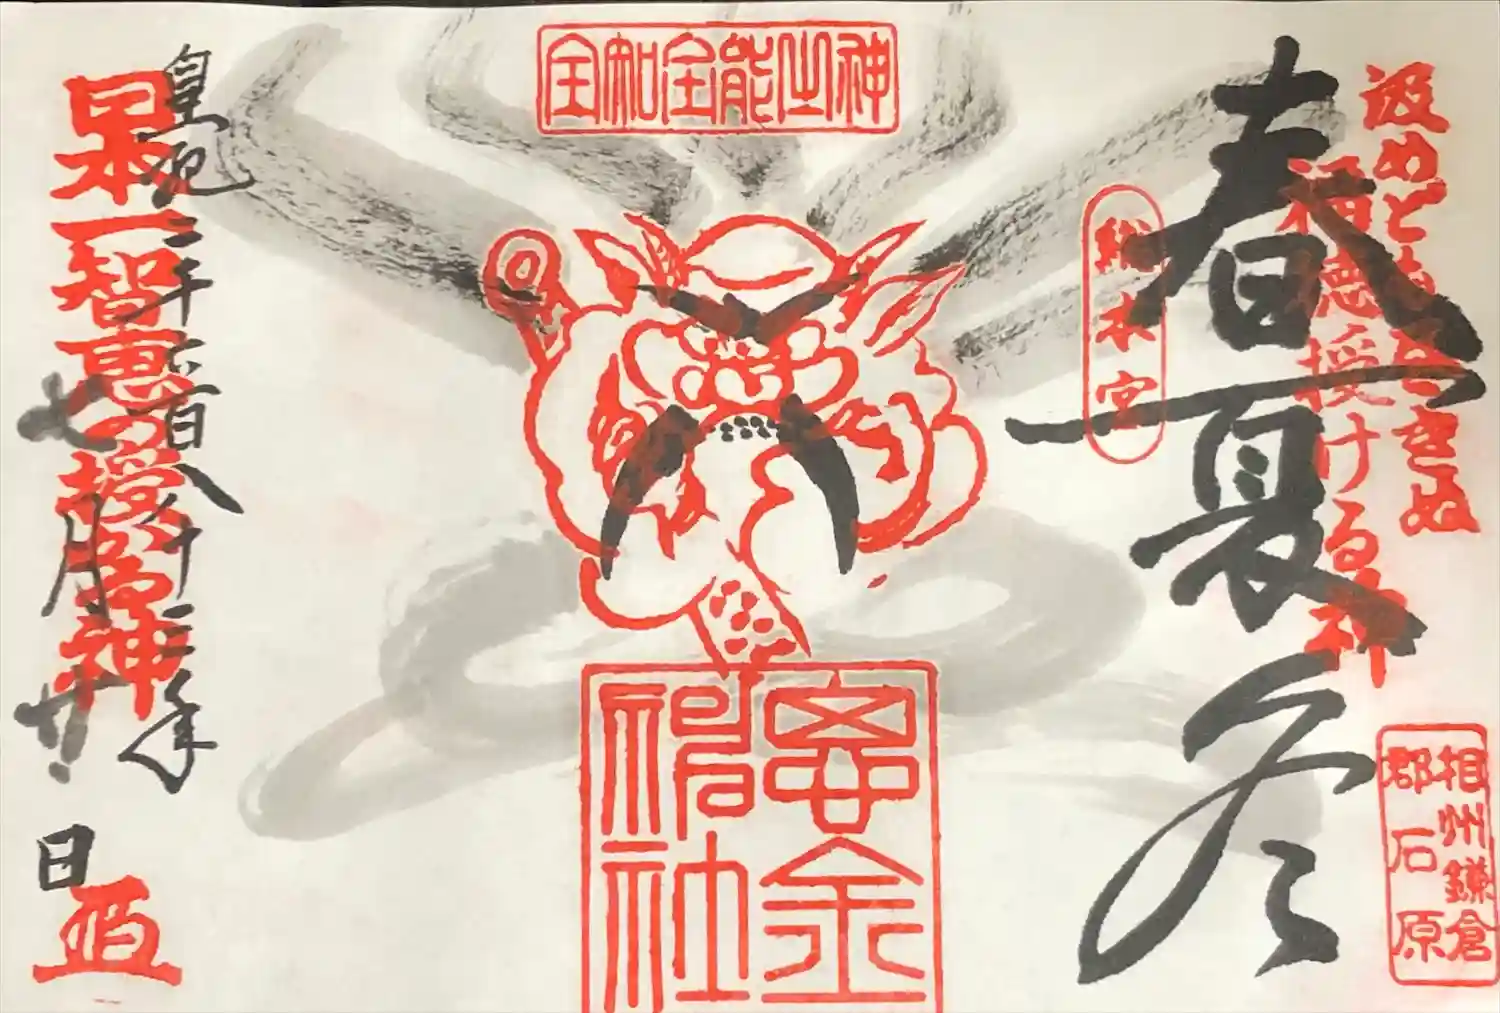 全知全能之神
汲めども尽きぬ
福徳授ける神
春夏冬
総本宮
相州鎌倉
郡石原
思金
神社
皇紀二千六百八十三年
七月廿日
日本一智恵の授かる神